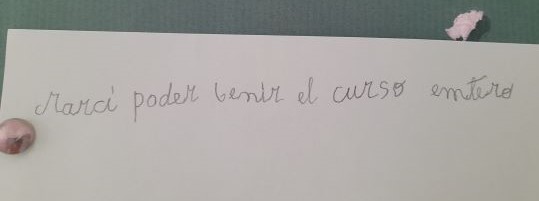 Narcí poder benir el curso emtero